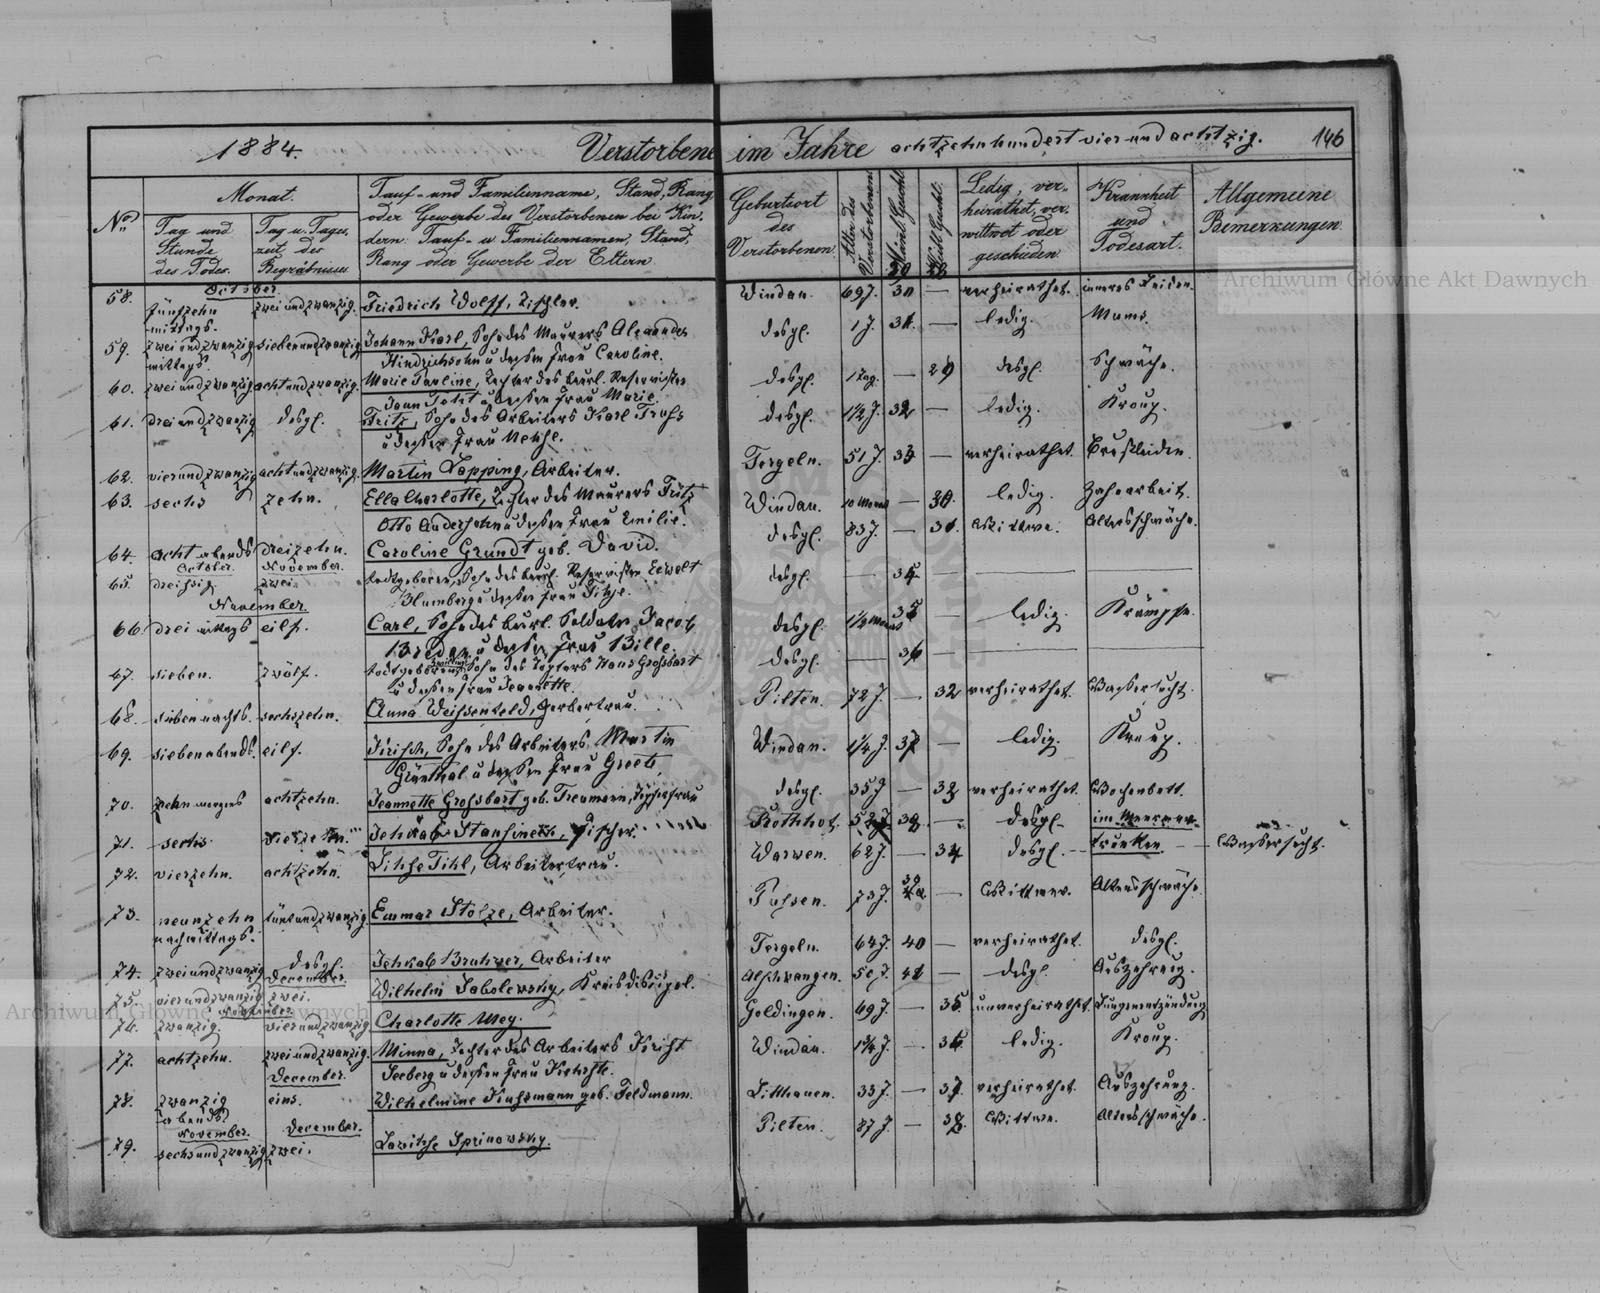 1884. Verstorbene im Jahre achtzehnhundert vier und achtzig. 146
No. Monat. Tauf- und Familienname, Stand, Rang Geburtsort Alter des Verstorbenen Männl. Geschl. Weibl. Geschl. Ledig, ver- Krankheit Allgemeine
oder Gewerbe des Verstorbenen bei Kin- des heirathet, ver- und Bemerkungen.
Tag und Tag u. Tages- dern: Tauf- u Familiennamen, Stand, Verstorbenen. wittwet oder Todesart.
Stunde zeit des Rang oder Gewerbe der Eltern. geschieden.
des Todes. Begräbnisses
October
58. fünfzehn zwei und zwanzig. Friedrich Wolff, Tischler. Windau. 69 J. 30 — verheirathet. inneres Leiden.
mittags.
59. zwei und zwanzig sieben und zwanzig Johann Karl, Sohn des Maurers Alexander desgl. 1 J. 31. — ledig.
mittags. Hindrichsohn u dessen Frau Caroline.
60. zwei und zwanzig acht und zwanzig. Marie Pauline, Tochter des beurl. Reservisten desgl. 1 Tag. — 29 desgl. Schwäche.
u dessen Frau Marie.
61. drei und zwanzig desgl. Fritz, Sohn des Arbeiters Karl desgl. 1½ J. 32 — ledig. Kroup.
u dessen Frau
62. vier und zwanzig acht und zwanzig. Martin Lapping, Arbeiter. Tergeln. 51 J. 33 — verheirathet. Brustleiden.
63. sechs zehn. Ella Charlotte, Tochter des Maurers Fritz Windau. 10 Monat — 30. ledig. Zahnarbeit.
Otto Andersohn u dessen Frau Emilie.
64. acht abends dreizehn. Caroline Grundt geb. David. desgl. 83 J. — 31. Wittwe. Altersschwäche.
October. November.
65. dreissig zwei todtgeboren, Sohn des beurl. Reservisten Ewalt desgl. — 34. — — —
Blumberg u dessen Frau
November
66. drei mittags eilf. Carl, Sohn des beurl. Soldaten Jacob desgl. 1½ Monat 35 — ledig. Krämpfe.
u dessen Frau Bille.
67. sieben. zwölf. todtgeboren Zwilling Sohn des Töpfers Hans Grossbart desgl. — 36 — — —
u dessen Frau Jeannette.
68. sieben nachts. sechszehn. Anna Weissenfeld, Gerberfrau. Pilten. 72 J. — 32 verheirathet. Wassersucht.
69. sieben abends. eilf. Fritsch, Sohn des Arbeiters Martin Windau. 1¼ J. 37 — ledig. Kroup.
Grünthal u dessen Frau Greete,
70. zehn morgens achtzehn. Jeannette Grossbart geb. Treumann, Töpferfrau desgl. 35 J — 33 verheirathet. Wochenbett.
71. sechs vierzehn. Jehkab Fischer. 52 J. 38. — desgl. im Meer er-
trunken.
72. vierzehn. achtzehn. Lihse Pihl, Arbeiterfrau. Warwen. 62 J. — 34 desgl. — — Wassersucht.
73. neunzehn fünf und zwanzig. Emmar Stolze, Arbeiter. Puhsen. 73 J. 39 — Wittwer. Altersschwäche.
nachmittags.
74. zwei und zwanzig desgl. Jehkab Bruhwer, Arbeiter Tergeln. 64 J. 40 — verheirathet. desgl.
December.
75. vier und zwanzig zwei. Wilhelm Sabolewsky, Kreisdiscipel. Alschwangen. 50 J. 41 — desgl. Auszehrung.
November.
76. zwanzig. vier und zwanzig Charlotte Mey. Goldingen. 69 J. — 35. unverheirathet. Lungenentzündung
77. achtzehn. zwei und zwanzig. Minna, Tochter des Arbeiters Kricht Windau. 1¾ J. — 36. ledig. Kroup.
Seeberg u dessen Frau
December.
78. zwanzig eins. Wilhelmine geb. Feldmann. Litthauen. 33 J. — 37. verheirathet. Auszehrung.
abends.
November. December.
79. sechs und zwanzig zwei. Lawihse Sprinowsky. Pilten. 87 J — 38. Wittwe. Altersschwäche.
Archiwum Główne Akt Dawnych
Archiwum Główne Akt Dawnych